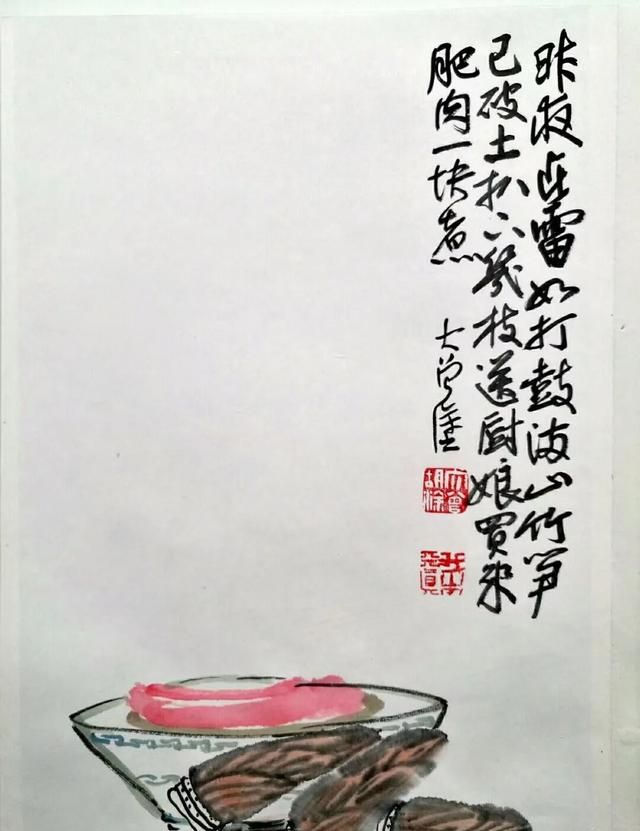 昨夜春雷如打鼓满山竹笋
已破土扒下几枝送厨娘买来
肥肉一块煮
大曾